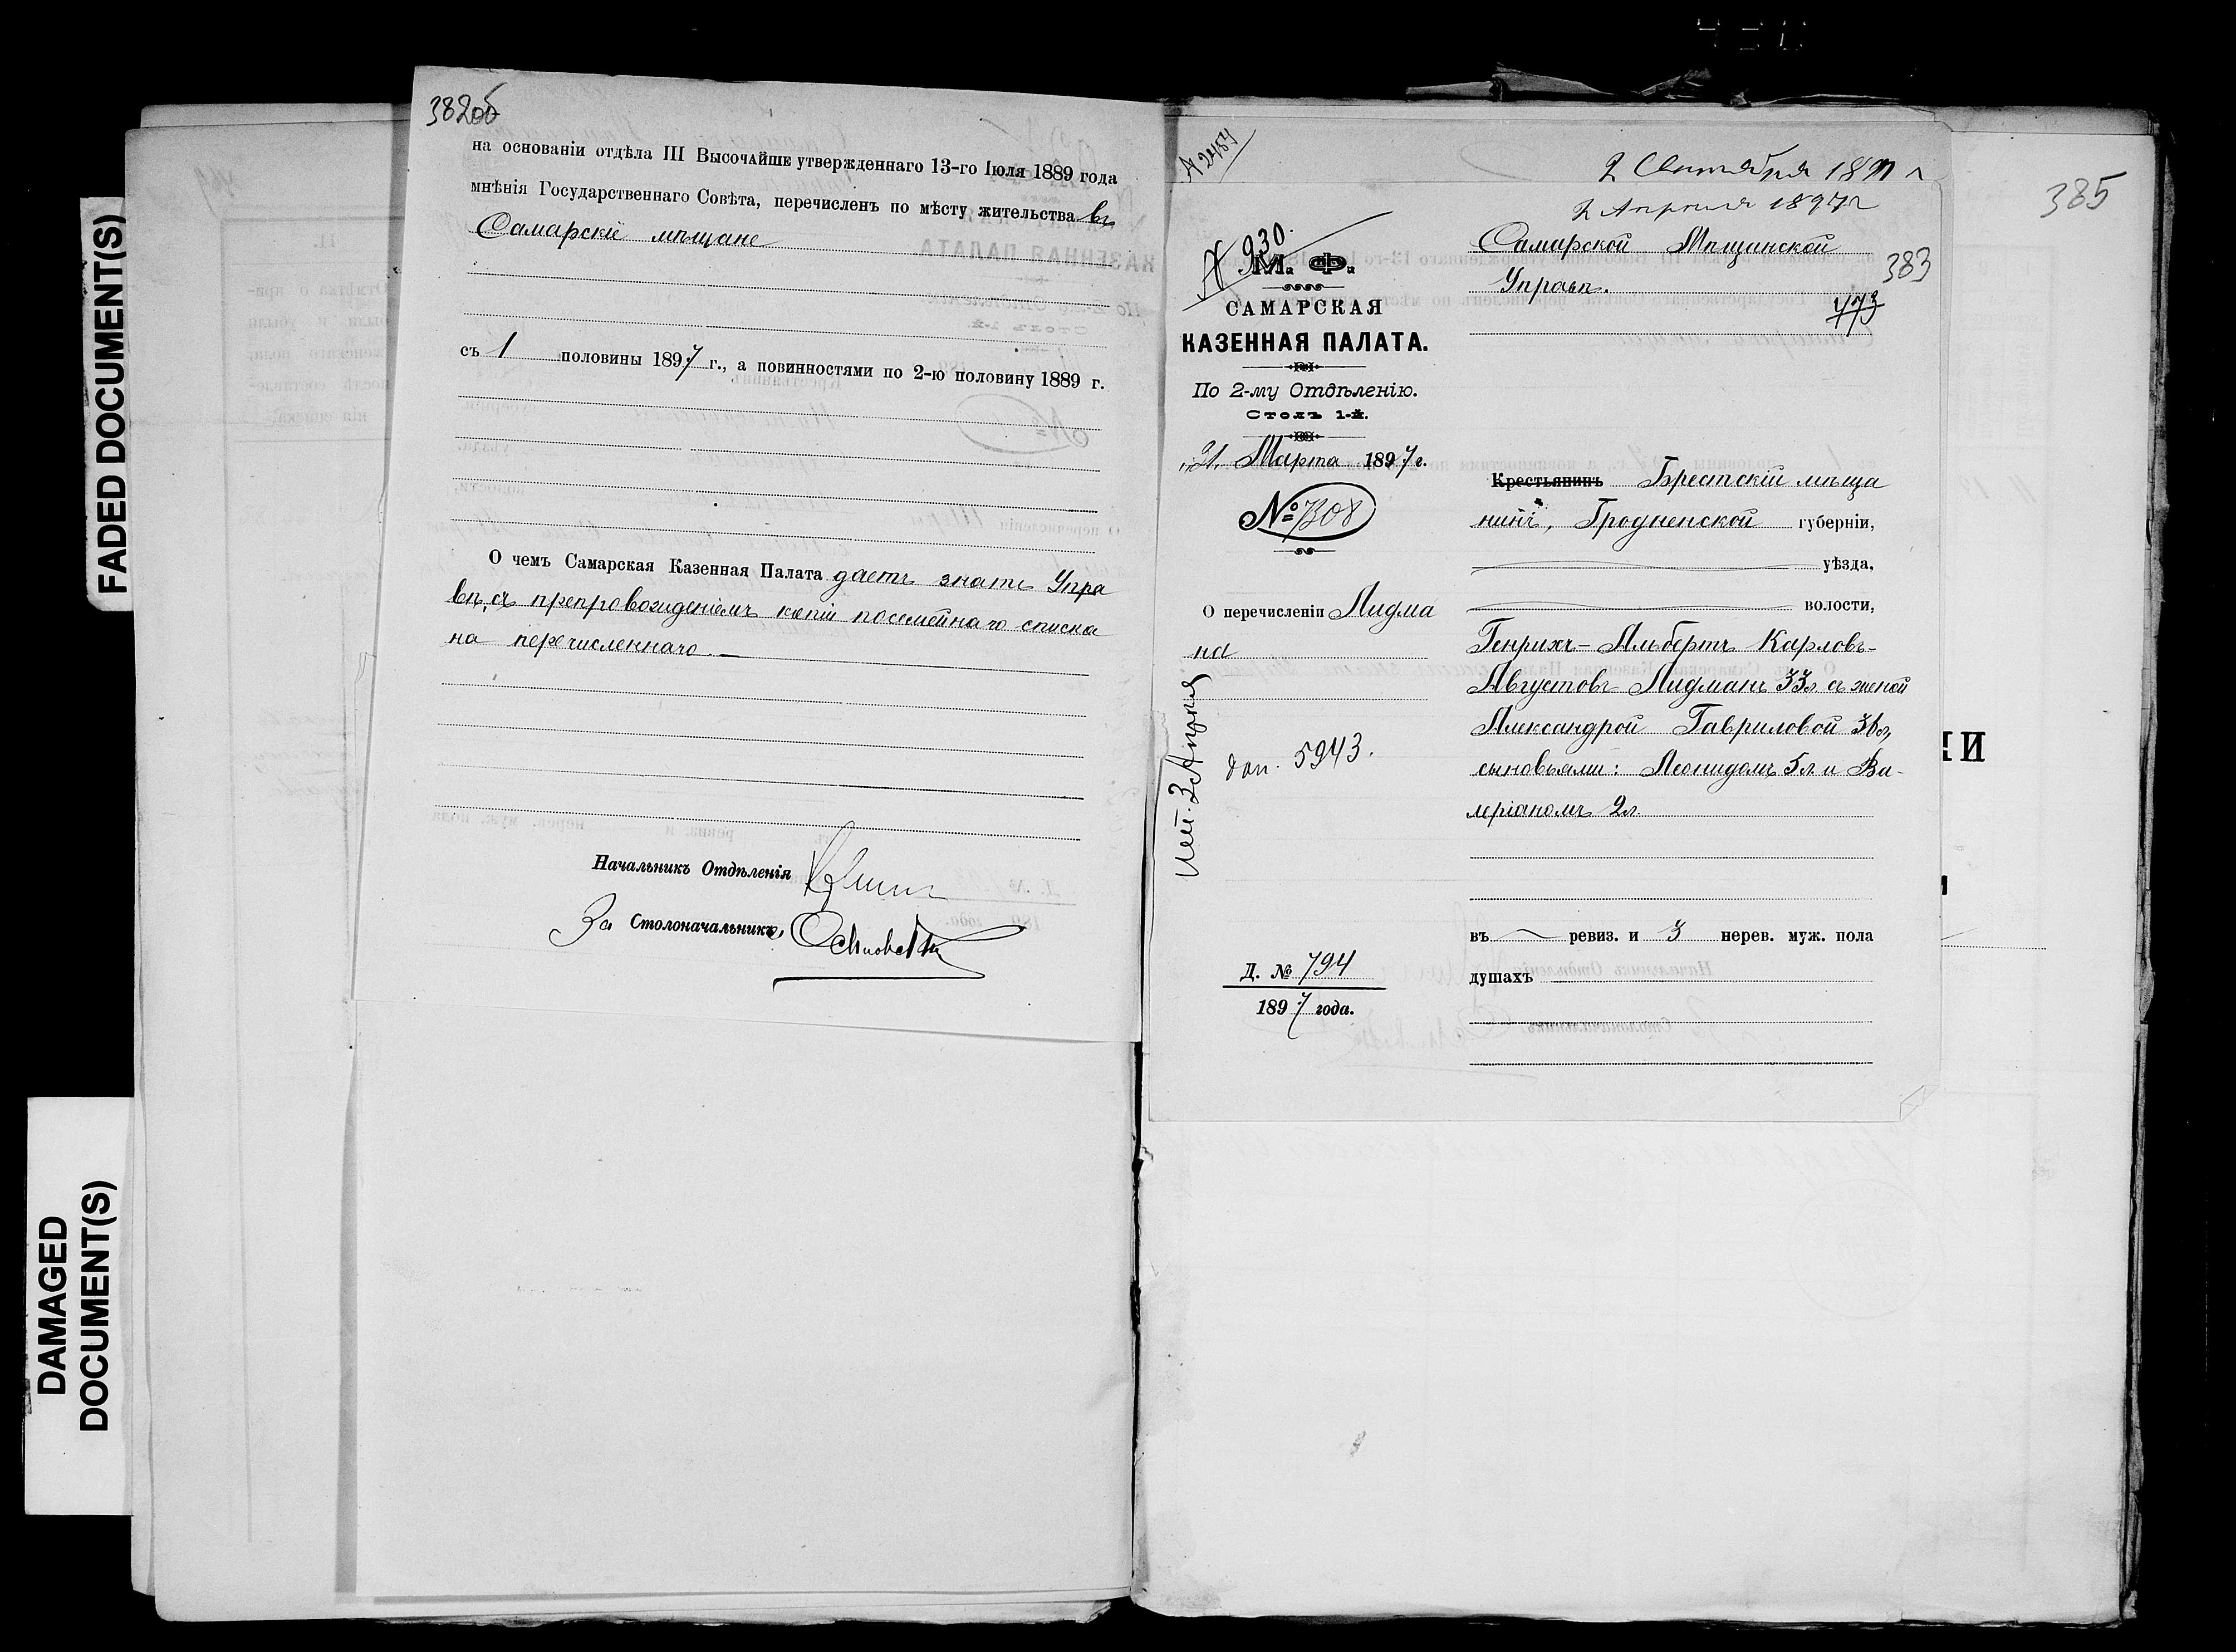 FADED DOCUMENT(S)
DAMAGED
DOCUMENT(S)
382об
на основаніи отдѣла III Высочайше утвержденнаго 13-го Іюля 1889 года
мнѣнія Государственнаго Совѣта, перечисленъ по мѣсту жительства въ
Самарскіе мѣщане
съ 1 половины 1897 г., а повинностями по 2-ю половину 1889 г.
О чемъ Самарская Казенная Палата даетъ знать Упра
вѣ, съ препровожденіемъ копіи посемейнаго списка
на перечисленнаго.
Начальникъ Отдѣленія
За Столоначальника,
385
2 Сентября
2 Апрѣля 1897 г
№ 930.
М. Ф.
САМАРСКАЯ
КАЗЕННАЯ ПАЛАТА.
По 2-му Отдѣленію.
Столъ 1-й.
21 Марта 1897 г.
№ 7308
О перечисленіи Лидма
на
3 Апрѣля
5943.
Д. № 794
1897 года.
Самарской Мѣщанской
Управѣ.
383
473
Крестьянинъ Брестскій мѣща
нинъ, Гродненской губерніи,
уѣзда,
волости,
Генрихъ-Альбертъ Карловъ-
Августовъ Лидманъ 33 л. съ женой
Александрой Гавриловой 36 л,
сыновьями: Леонидомъ 5 л. и Ва-
леріаномъ 2 л.
въ ревиз. и 3 нерев. муж. пола
душахъ